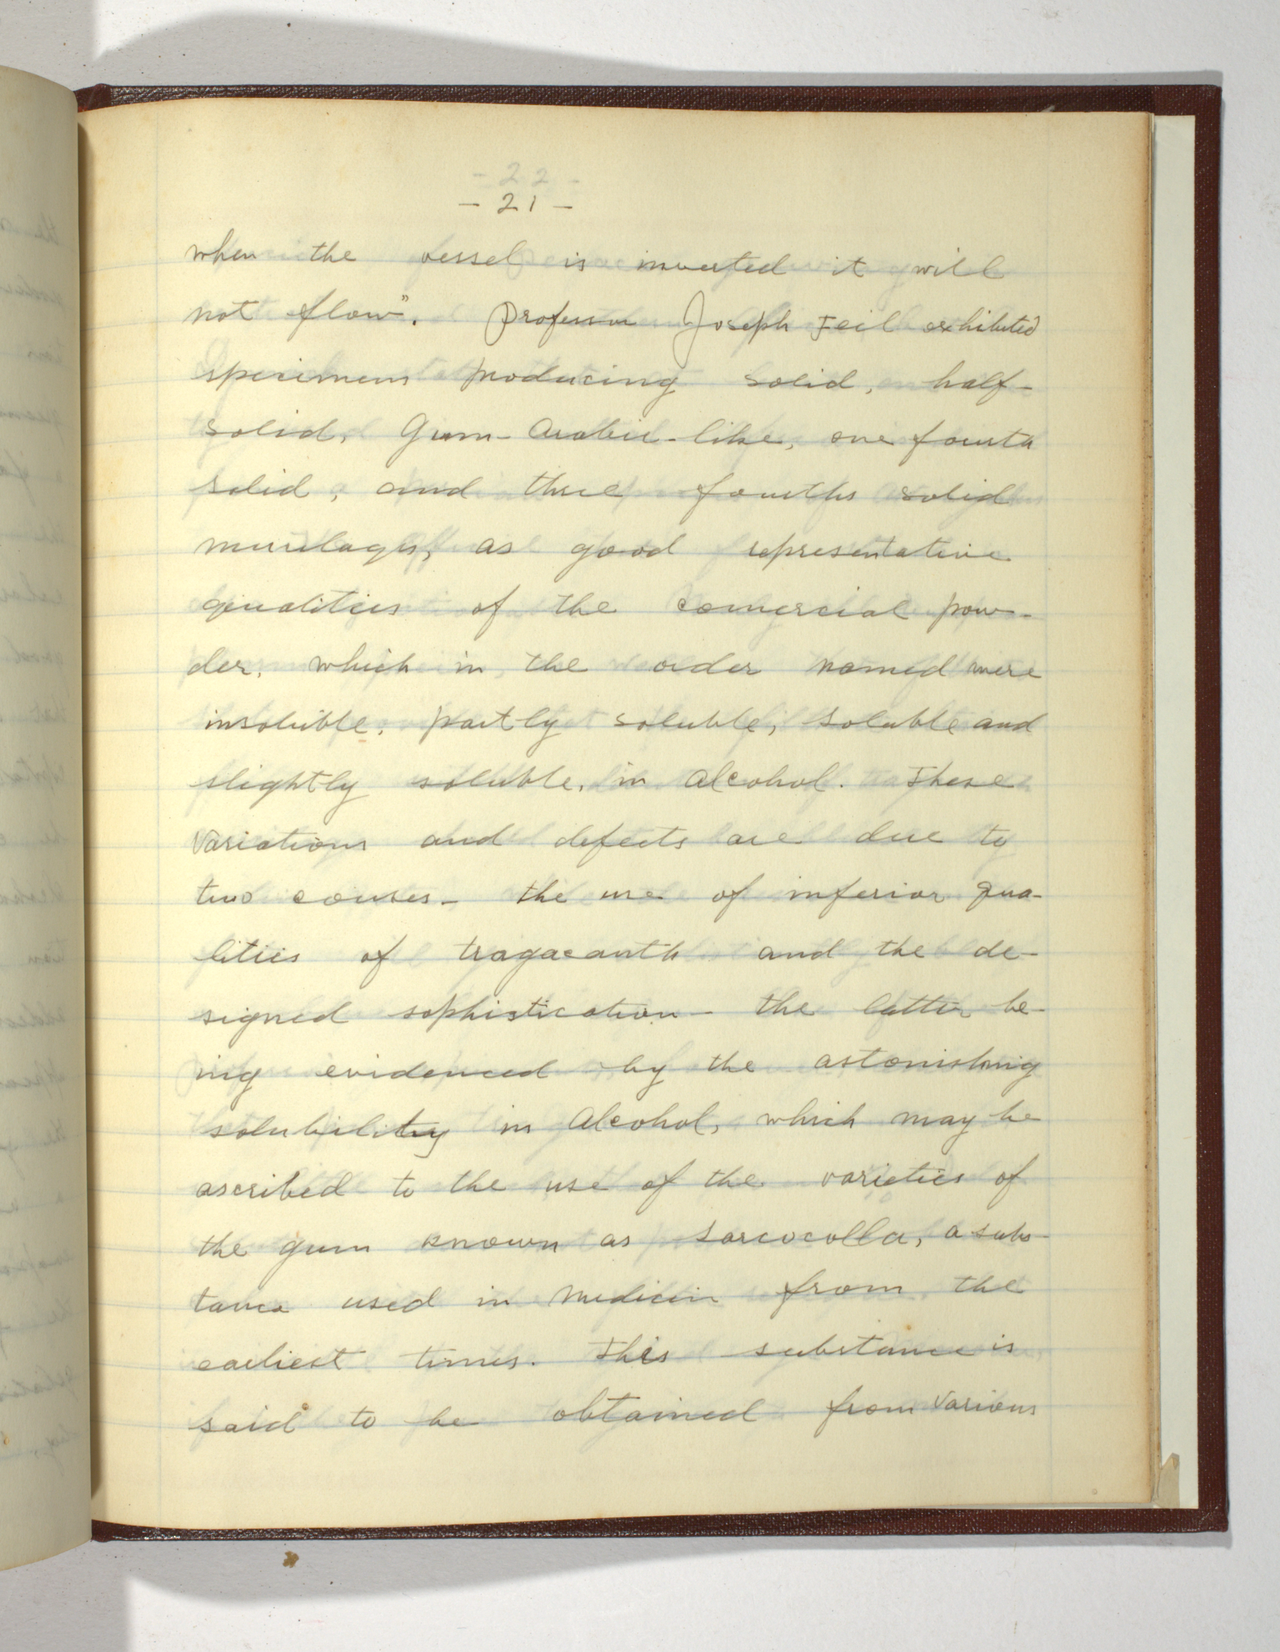 - 22 -
- 21 -
when the vessel is inverted it will
not flow". Professor Joseph Feil exhibited
specimens producing solid, half-
solid, Gum-Arabic-like, one fourth
solid, and three fourths solid
mucilages, as good representative
qualities of the comercial pow-
der, which in the order named were
insoluble, partly soluble, soluble and
slightly soluble, in Alcohol. These
variations and defects are due to
two causes - the use of inferior qua-
lities of tragacanth and the de-
signed sophistication - the latter be-
ing evidenced by the astonishing
solubility in Alcohol, which may be
ascribed to the use of the varieties of
the gum known as Sarcocolla, a subs-
tance used in Medicin from the
earliest times. This substance is
said to be obtained from various